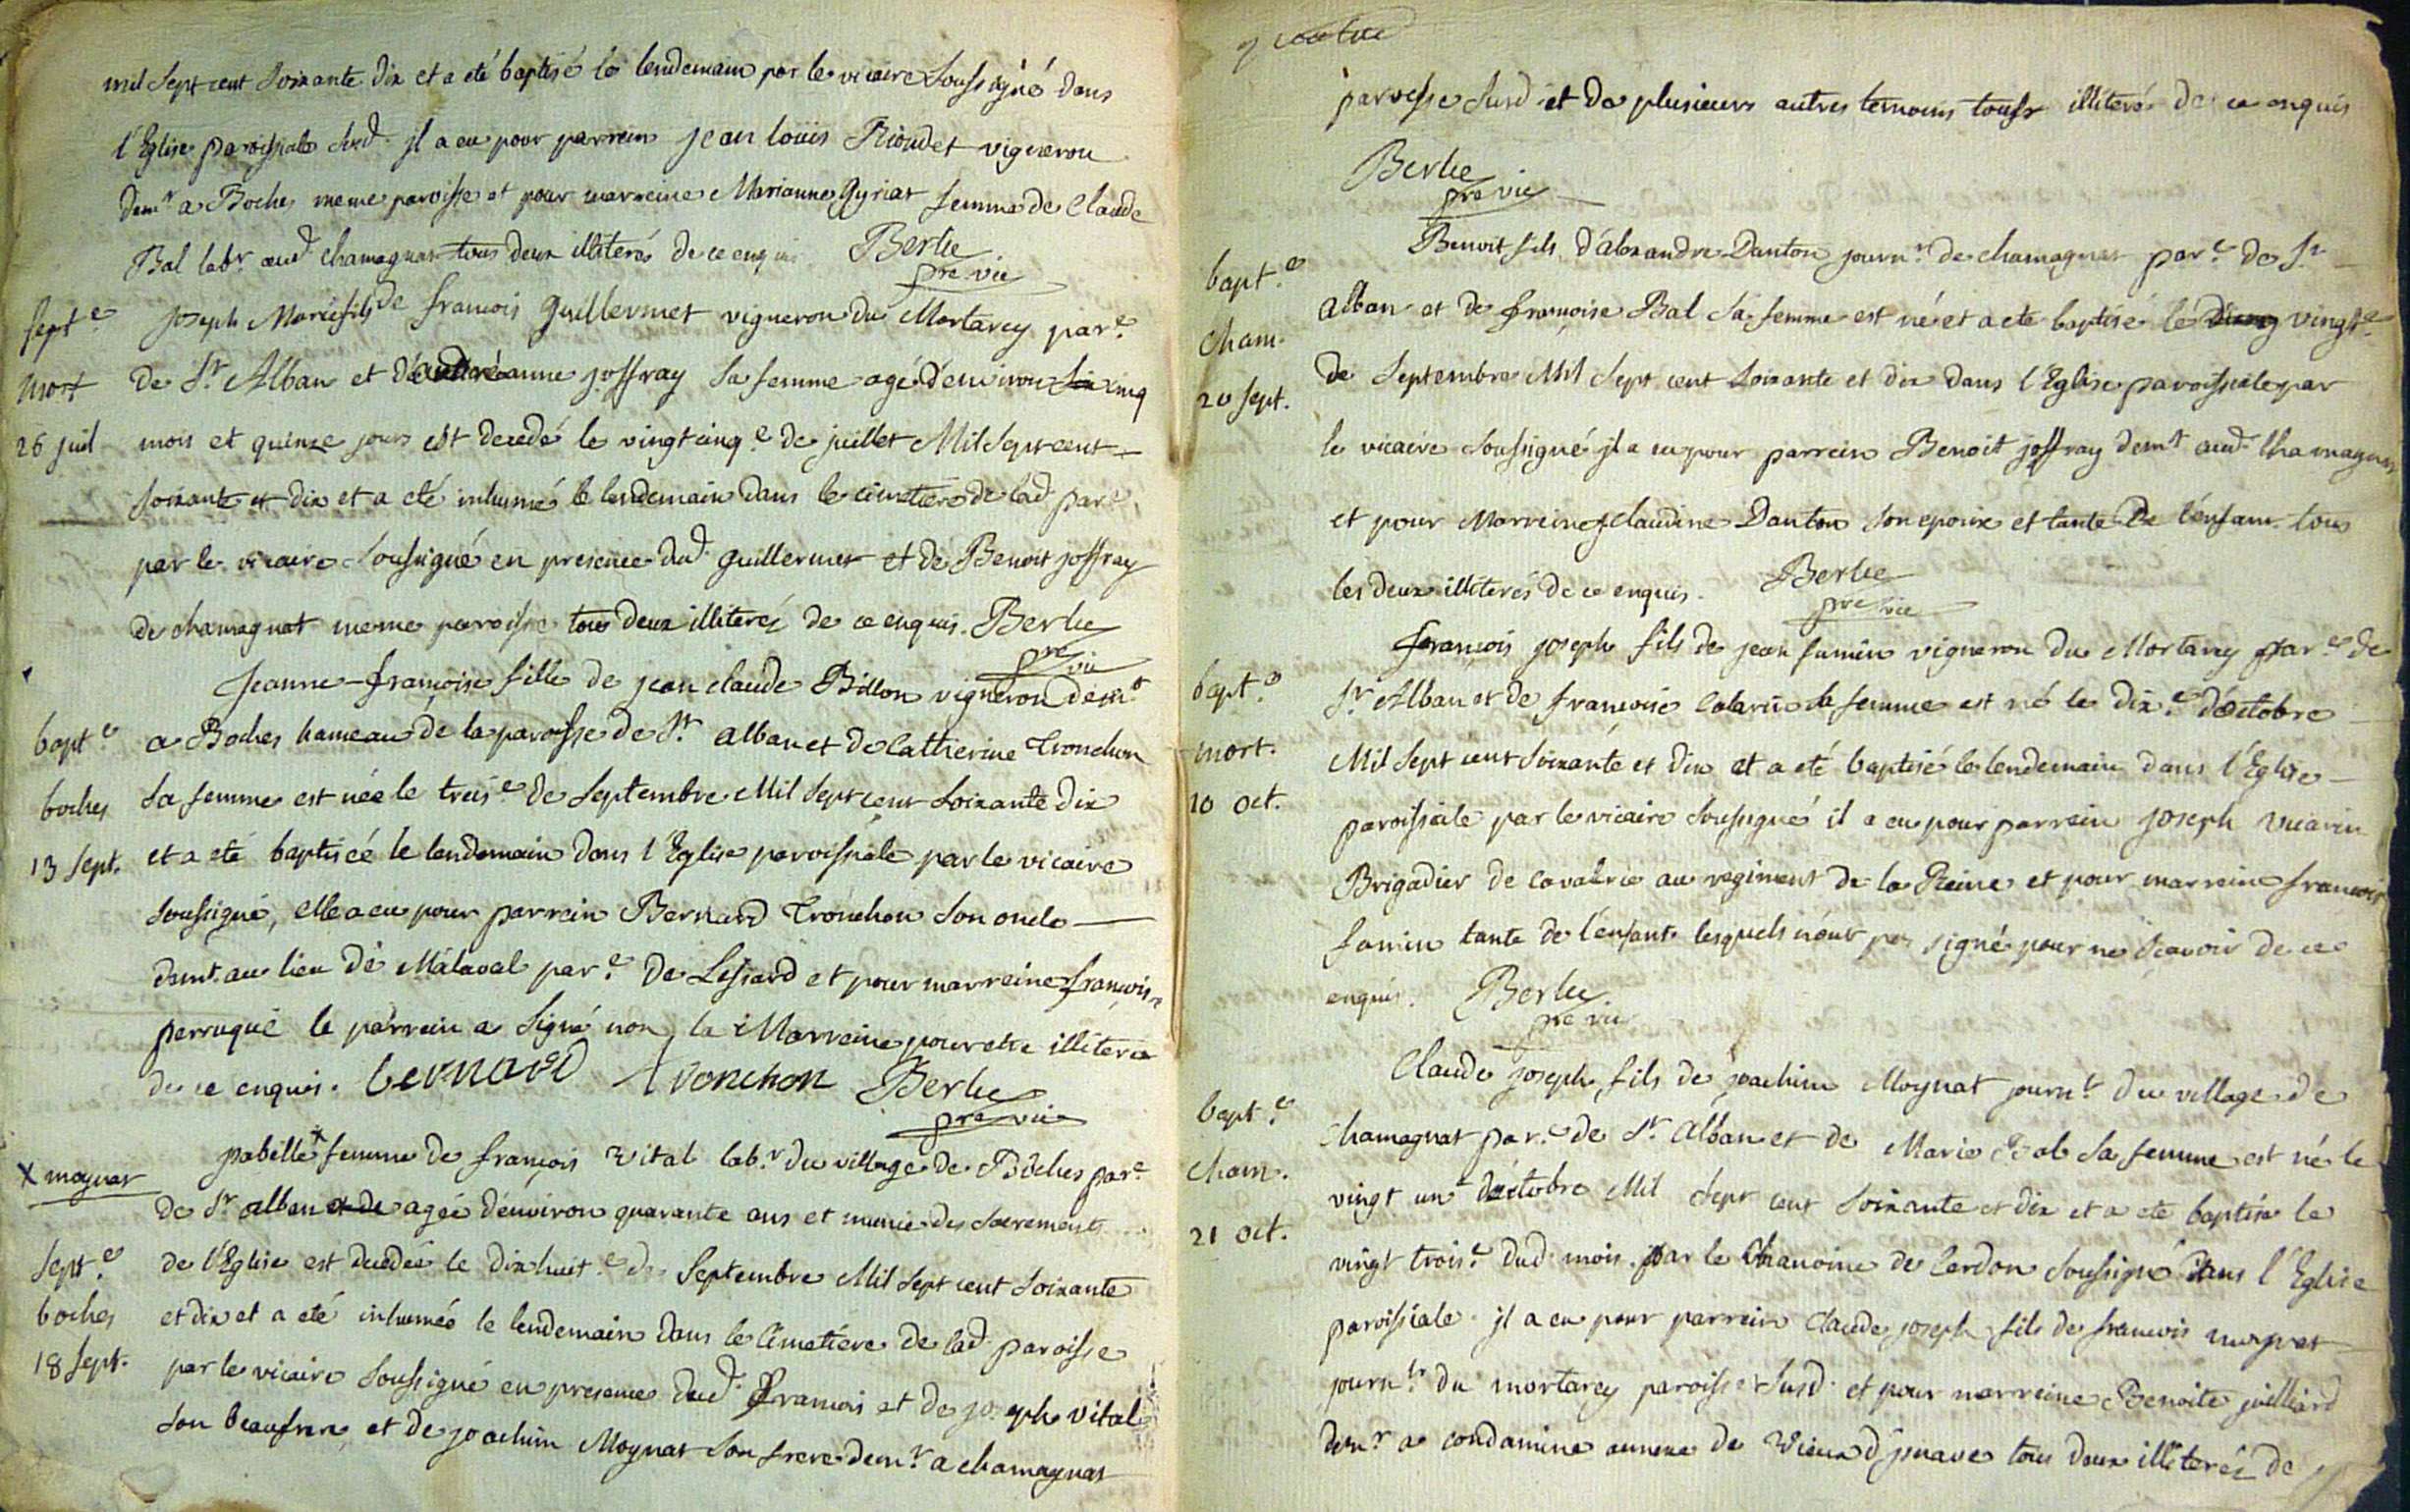 mil sept cent soixante dix et a eté baptisé le lendemain par le vicaire soussigné dans
l'Eglise paroissiale susd. il a eu pour parrein jean louis Rioudet vigneron
demt a Boches meme paroisse et pour marreine Marianne Gyriat femme de Claude
Bal labr aud chamagnat tous deux illiterés de ce enquis Berlie
pre vic
sept.e
mort
26 juil
joseph Marie fils de francois guillermet vigneron du Mortarey par.e
de St Alban et d' anne joffray sa femme agé d'environ cinq
mois et quinze jours est decedé le vingt cinq.e de juillet Mil sept cent
soixante et dix et a eté inhumé le lendemain dans le cimetiere de lad par.e
par le vicaire soussigné en presence dud. guillermet et de Benoit joffray
de chamagnat meme paroisse tous deux illiterés de ce enquis. Berlie
pre vic
bapt.e
boches
13 sept.
Jeanne-françoise fille de jean claude Billon vigneron demt
a Boches hameau de la paroisse de St alban et de Catherine Tronchon
sa femme est née le treis.e de Septembre Mil sept cent soixante dix
et a eté baptiseé le lendemain dans l'Eglise paroissiale par le vicaire
soussigné, elle a eu pour parrein Bernard Tronchon son oncle
demt. au lieu de Malaval par.e de Lessard et pour marreine françoise
perruque le parrein a signé non la Marreine pour etre illiterée
de ce enquis. bernard tronchon Berlie
pre vic
x moynat
sept.e
boches
18 sept.
jsabelle x femme de françois Vital lab.r du village de Boches par.e
de St alban et de ageé d'environ quarante ans et munie des sacrements
de l'Eglise est decedeé le dix huit.e de Septembre Mil sept cent soixante
et dix et a eté inhumeé le lendemain dans le Cimetiere de lad. paroisse
par le vicaire soussigné en presence dud. francois et de joseph vital
son beaufrere et de joachim Moynat son frere demt a chamagnat
paroisse susd. et de plusieurs autres temoins tous illiterés de ce enquis
Berlie
pre vic
bapt.e
Cham.
20 sept.
Benoit fils d'alexandre Danton journ.r de chamagnat par.e de St
alban et de françoise Bal sa femme est né et a eté baptisé le vingt.e
de Septembre Mil sept cent soixante et dix dans l'Eglise paroissiale par
le vicaire soussigné il a eu pour parrein Benoit joffray demt aud. chamagnat
et pour Marreine Claudine Danton son epouse et tante de l'enfant tous
les deux illiterés de ce enquis. Berlie
pre vic
bapt.e
mort.
10 oct.
françois joseph fils de jean famin vigneron du Mortarey par.e de
St Alban et de françoise sa femme est né le dix.e d'octobre
Mil sept cent soixante et dix et a eté baptisé le lendemain dans l'Eglise
paroissiale par le vicaire soussigné il a eu pour parrein joseph vucarin
Brigadier de cavalrie au regiment de la Reine et pour marreine francoise
famin tante de l'enfant lesquels n'ont pas signé pour ne sçavoir de ce
enquis. Berlie
pre vic
bapt.e
cham.
21 oct.
Claude joseph fils de joachim Moynat journ.r du village de
chamagnat par.e de St Alban et de Marie Bal sa femme est né le
vingt un.e d'octobre Mil sept cent soixante et dix et a eté baptisé le
vingt trois.e dud. mois par le Chanoine de Cerdon soussigné dans l'Eglise
paroissiale. il a eu pour parrein Claude joseph fils de francois moynat
journ.r du mortarey paroisse susd. et pour marreine Benoite juilliard
demt a condamine annexe de Vieux d'jsnave tous deux illiterés de